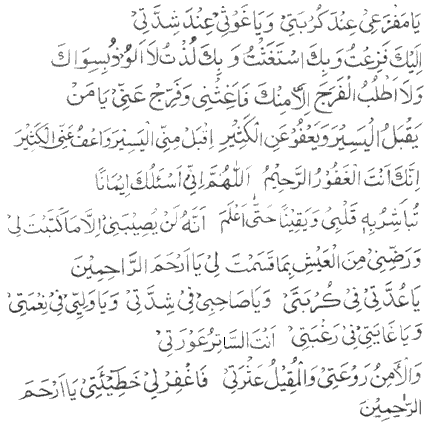 يَا مَفْزَعِيْ عِنْدَ كُرْبَتِيْ وَيَا غَوْثِيْ عِنْدَ شِدَّتِيْ
اِلَيْكَ فَزِعْتُ وَبِكَ اسْتَغَثْتُ وَبِكَ لُذْتُ لَا اَلُوْذُ بِسِوَاكَ
وَلَا اَطْلُبُ الْفَرَجَ اِلَّا مِنْكَ فَاَغِثْنِيْ وَفَرِّجْ عَنِّيْ يَا مَنْ
يَقْبَلُ الْيَسِيْرَ وَيَعْفُوْ عَنِ الْكَثِيْرِ اِقْبَلْ مِنِّي الْيَسِيْرَ وَاعْفُ عَنِّي الْكَثِيْرَ
اِنَّكَ اَنْتَ الْغَفُوْرُ الرَّحِيْمُ اَللّٰهُمَّ اِنِّيْ اَسْئَلُكَ اِيْمَانًا
تُبَاشِرُ بِهٖ قَلْبِيْ وَيَقِيْنًا حَتّٰى اَعْلَمَ اَنَّهُ لَنْ يُصِيْبَنِيْ اِلَّا مَا كَتَبْتَ لِيْ
وَرَضِّنِيْ مِنَ الْعَيْشِ بِمَا قَسَمْتَ لِيْ يَا اَرْحَمَ الرَّاحِمِيْنَ
يَا عُدَّتِيْ فِيْ كُرْبَتِيْ وَيَا صَاحِبِيْ فِيْ شِدَّتِيْ وَيَا وَلِيِّيْ فِيْ نِعْمَتِيْ
وَيَا غَايَتِيْ فِيْ رَغْبَتِيْ اَنْتَ السَّاتِرُ عَوْرَتِيْ
وَالْاٰمِنُ رَوْعَتِيْ وَالْمُقِيْلُ عَثْرَتِيْ فَاغْفِرْ لِيْ خَطِيْٓئَتِيْ يَا اَرْحَمَ
الرّٰحِمِيْنَ